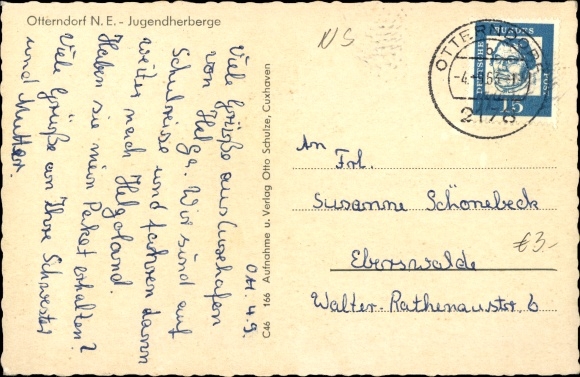 Otterndorf N. E. - Jugendherberge
Ott. 4.9.
Viele Grüße aus Cuxhafen
von Helga. Wir sind auf
Schulreise und fahren dann
weiter nach Helgoland.
Haben sie mein Paket erhalten?
Viele Grüße an Ihre Schwester
und Mutter.
C46 166 Aufnahme u. Verlag Otto Schulze, Cuxhaven
NS
OTTERNDORF
2178
DEUTSCHE BUNDESPOST
15
An
Frl.
Susanne Schönebeck
Eberswalde
Walter-Rathenaustr 6
€3.-